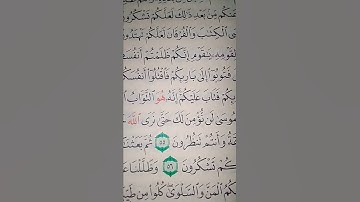 عَنكُم مِّنۢ بَعْدِ ذَٰلِكَ لَعَلَّكُمْ تَشْكُرُونَ
ٱلْكِتَٰبَ وَٱلْفُرْقَانَ لَعَلَّكُمْ تَهْتَدُونَ
لِقَوْمِهِۦ يَٰقَوْمِ إِنَّكُمْ ظَلَمْتُمْ أَنفُسَ
فَتُوبُوٓا۟ إِلَىٰ بَارِئِكُمْ فَٱقْتُلُوٓا۟ أَنفُسَكُ
رِئِكُمْ فَتَابَ عَلَيْكُمْ إِنَّهُۥ هُوَ ٱلتَّوَّابُ
مُوسَىٰ لَن نُّؤْمِنَ لَكَ حَتَّىٰ نَرَى ٱللَّهَ
قَةُ وَأَنتُمْ تَنظُرُونَ ٥٥ ثُمَّ بَعَثْنَـٰ
كُمْ تَشْكُرُونَ ٥٦ وَظَلَّلْنَا عَ
كُمُ ٱلْمَنَّ وَٱلسَّلْوَىٰ كُلُوا۟ مِن طَيِّبَـٰ